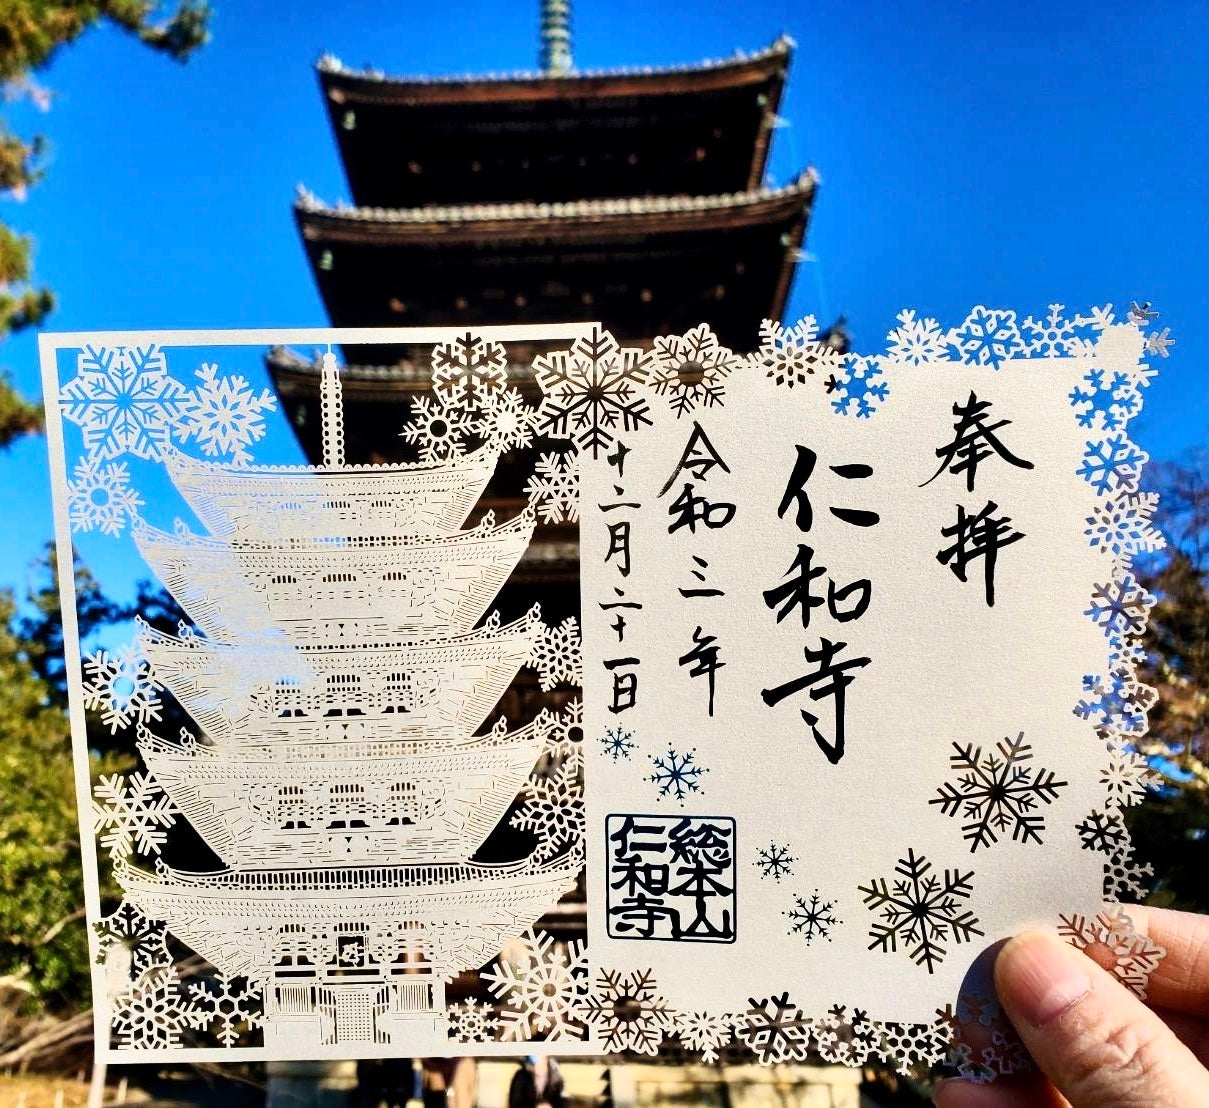 奉拝
仁和寺
令和三年
十二月二十一日
総本山
仁和寺